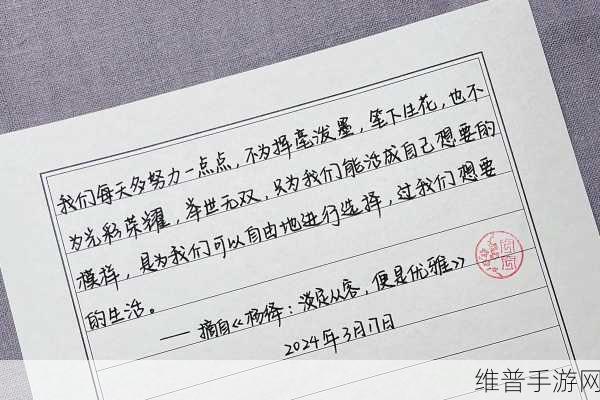 我们每天多努力一点点，不为挥毫泼墨，笔下生花，也不
为光彩荣耀，举世无双，只为我们能活成自己想要的
模样，是为我们可以自由地进行选择，过我们想要
的生活。
——摘自《杨绛：淡定从容，便是优雅》
2024年3月17日
维普手游网